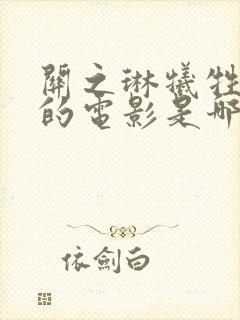 關之琳犧牲
的電影是哪
依劍白